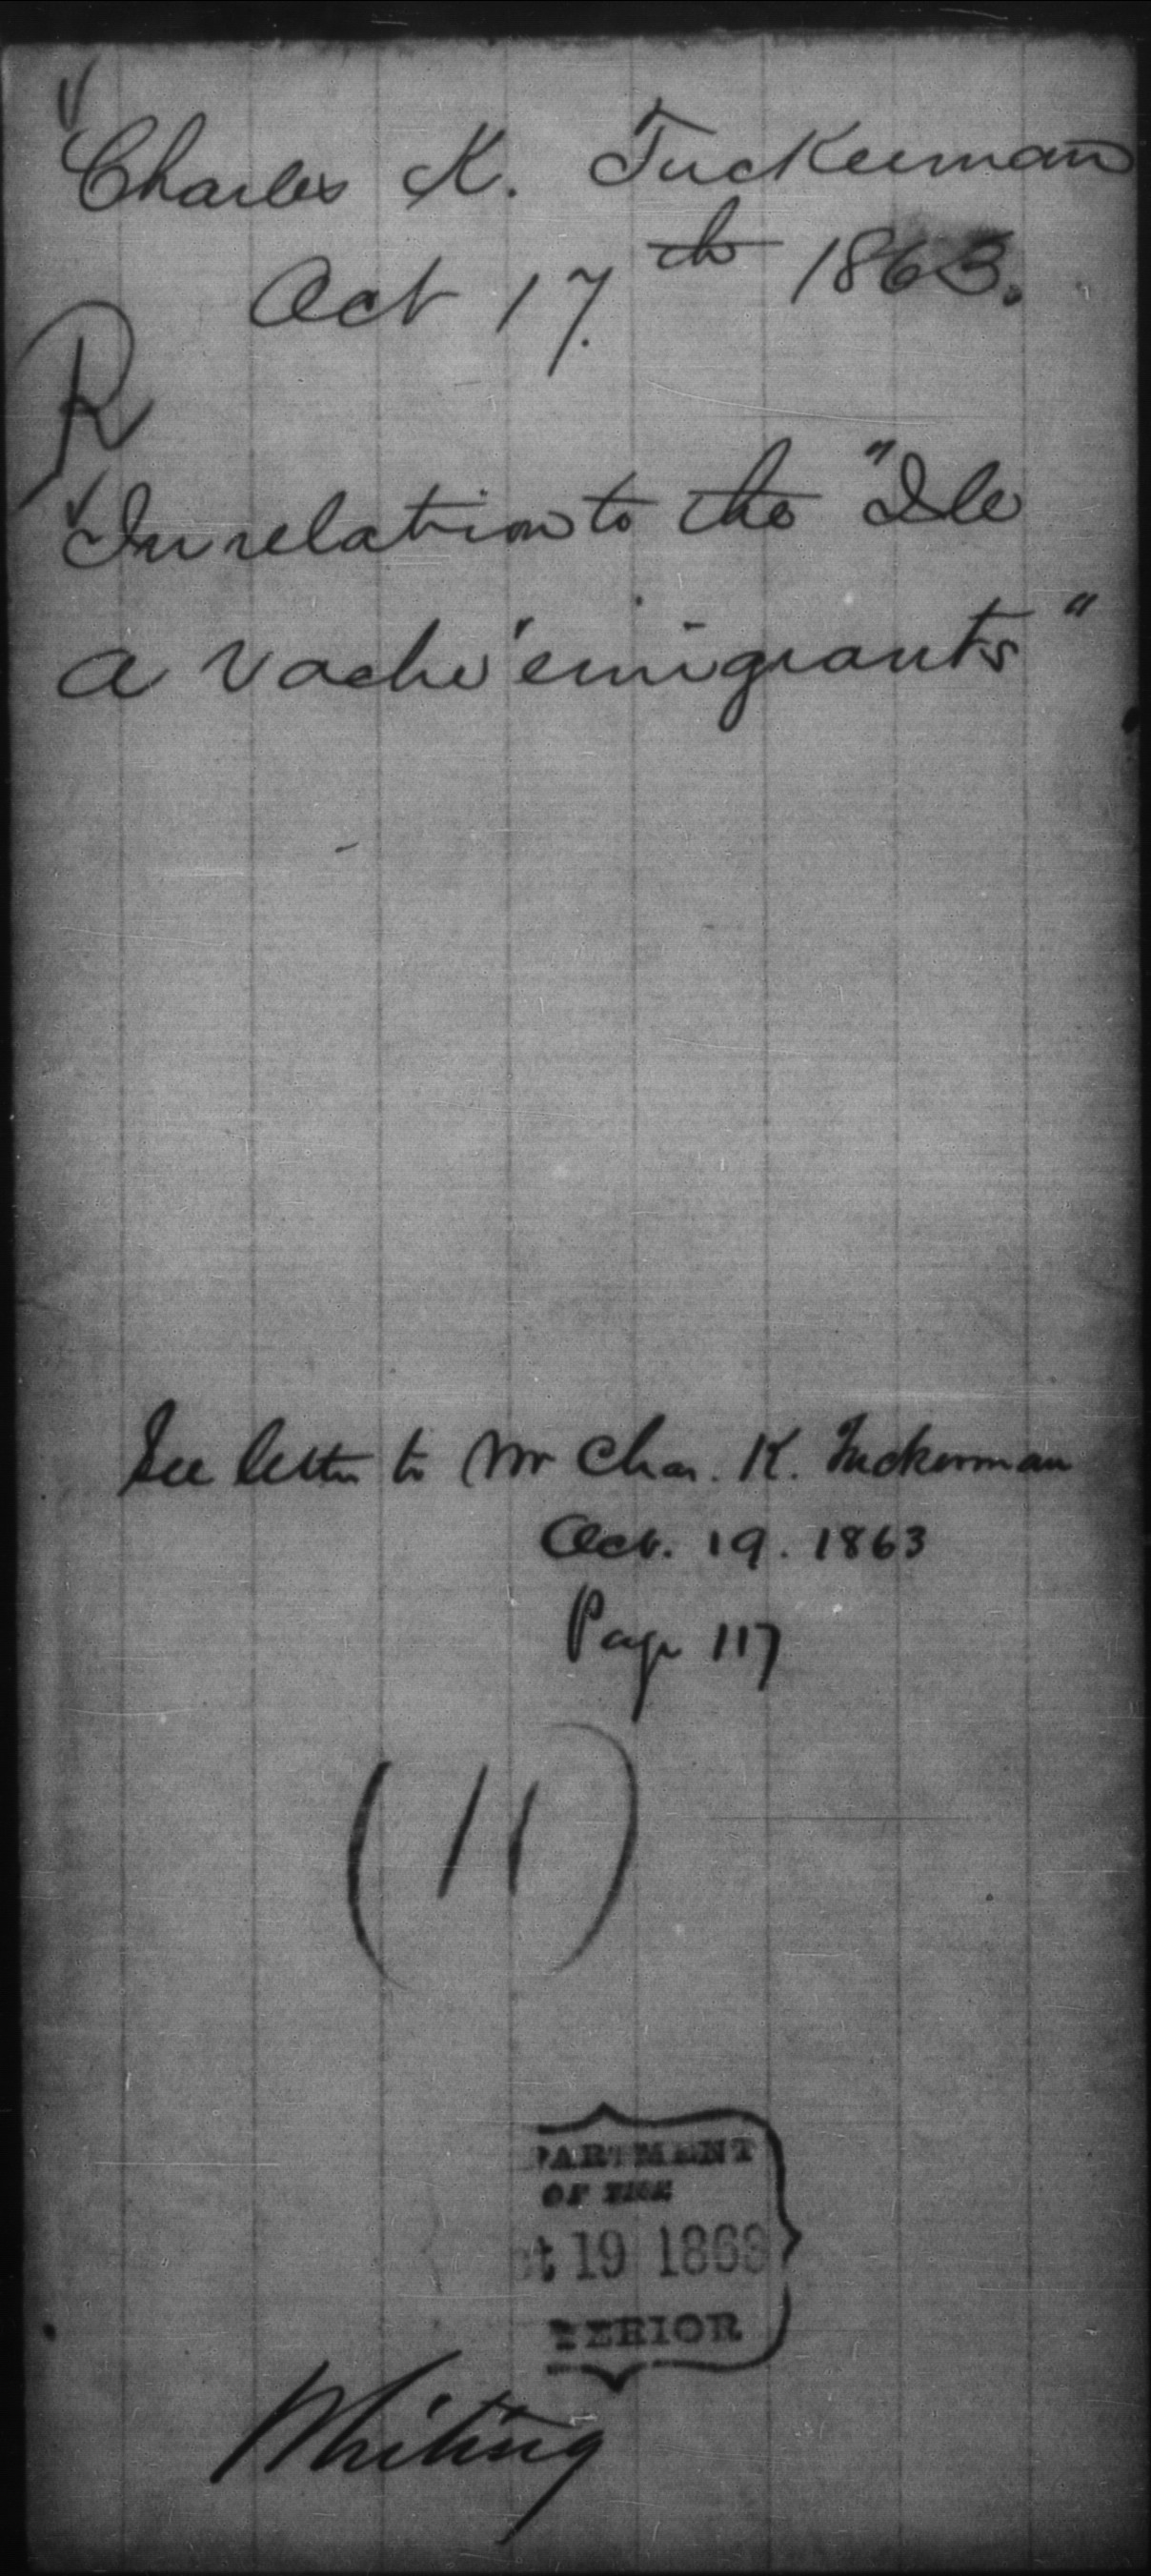 Charles K. Tuckerman
Oct 17th 1863.
R
In relation to the "Ile
a Vache" emigrants"
See letter to Mr Chas. K. Tuckerman
Oct. 19. 1863
Page 117
(11)
PARTMENT
OF THE
ct 19 1863
TERIOR
Whiting